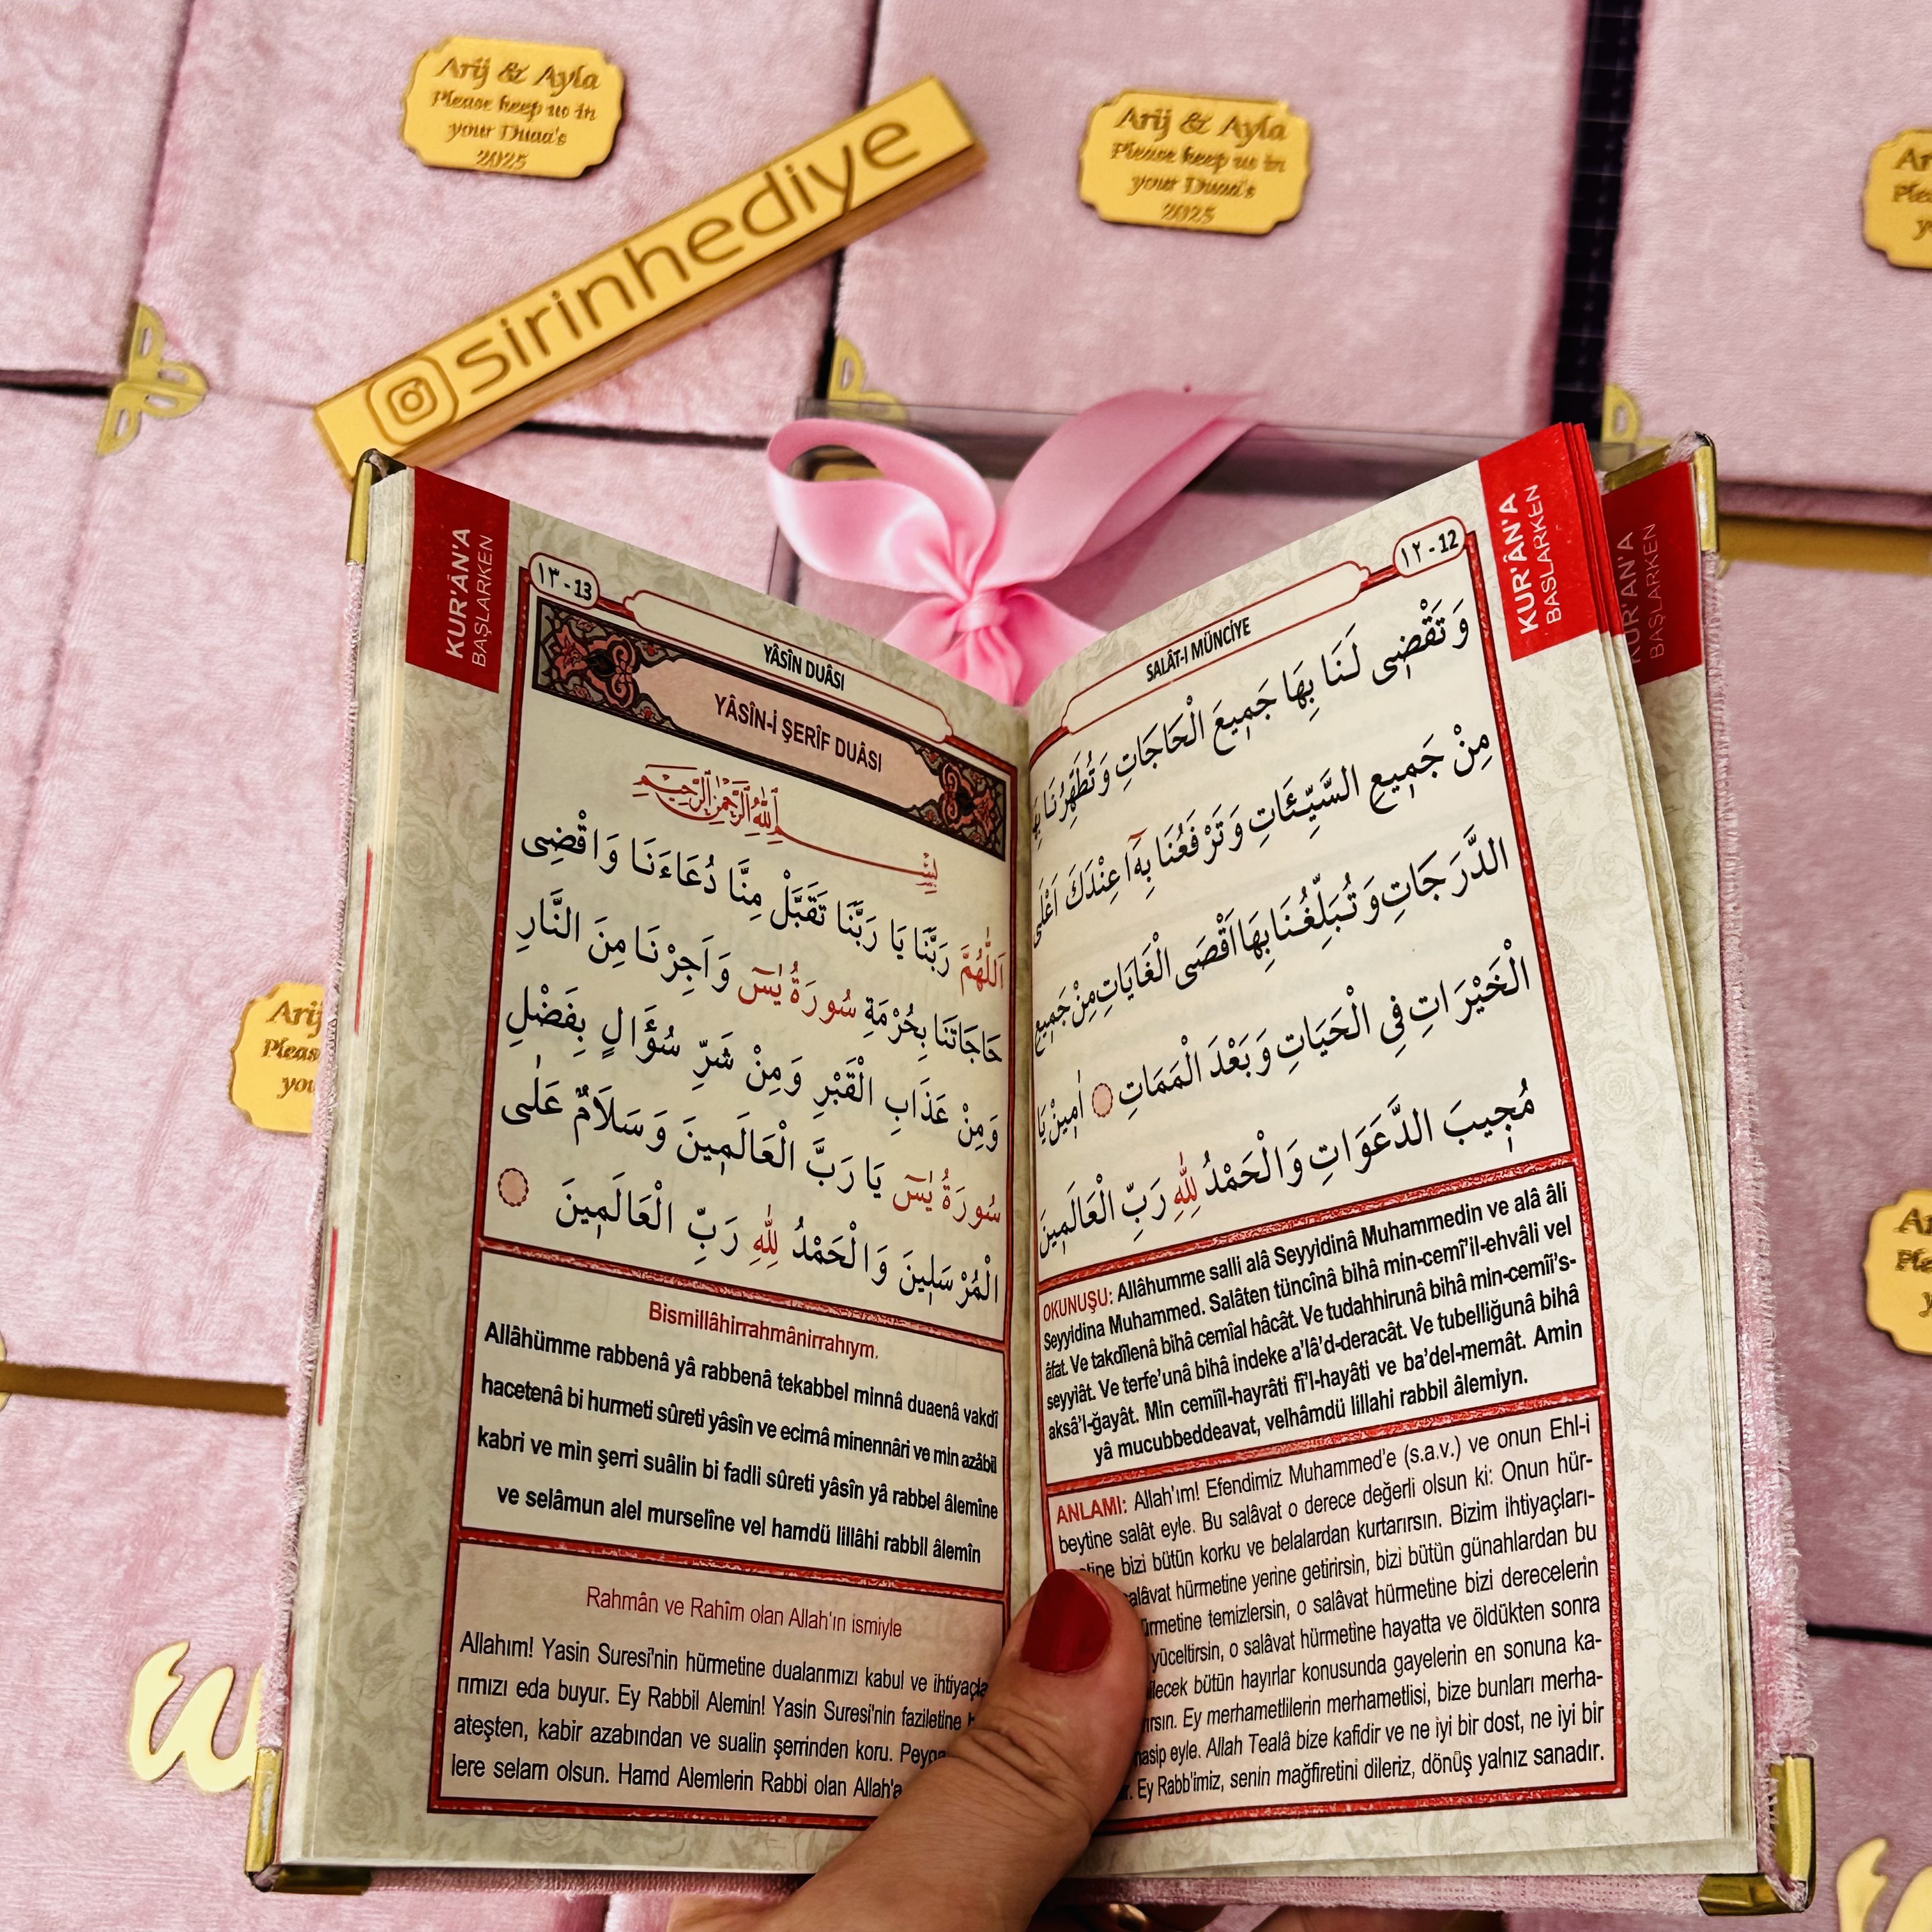 Arij & Ayla
Please keep us in
your Duaa's
2025
sirinhediye
Arij & Ayla
Please keep us in
your Duaa's
2025
KUR'ÂN'A
BAŞLARKEN
١٣ - 13
YÂSÎN DUÂSI
YÂSÎN-İ ŞERÎF DUÂSI
بِسْمِ اللّٰهِ الرَّحْمٰنِ الرَّحِيمِ
اَللّٰهُمَّ رَبَّنَا يَا رَبَّنَا تَقَبَّلْ مِنَّا دُعَاءَنَا وَاقْضِى
حَاجَاتَنَا بِحُرْمَةِ سُورَةُ يٰسٓ وَاَجِرْنَا مِنَ النَّارِ
وَمِنْ عَذَابِ الْقَبْرِ وَمِنْ شَرِّ سُؤَالٍ بِفَضْلِ
سُورَةُ يٰسٓ يَا رَبَّ الْعَالَمِينَ وَسَلَامٌ عَلٰى
الْمُرْسَلِينَ وَالْحَمْدُ لِلّٰهِ رَبِّ الْعَالَمِينَ
Bismillâhirrahmânirrahıym.
Allâhümme rabbenâ yâ rabbenâ tekabbel minnâ duaenâ vakdî
hacetenâ bi hurmeti sûreti yâsîn ve ecirnâ minennâri ve min azâbil
kabri ve min şerri suâlin bi fadli sûreti yâsîn yâ rabbel âlemîne
ve selâmun alel murselîne vel hamdü lillâhi rabbil âlemîn
Rahmân ve Rahîm olan Allah'ın ismiyle
Allahım! Yasin Suresi'nin hürmetine dualarımızı kabul ve ihtiyaçla
rımızı eda buyur. Ey Rabbil Alemin! Yasin Suresi'nin faziletine
ateşten, kabir azabından ve sualin şerrinden koru.
lere selam olsun. Hamd Alemlerin Rabbi olan Allah'a
١٢ - 12
SALÂT-I MÜNCİYE
KUR'ÂN'A
BAŞLARKEN
KUR'ÂN'A
BAŞLARKEN
وَتَقْضِى لَنَا بِهَا جَمِيعَ الْحَاجَاتِ وَتُطَهِّرُنَا بِهَا
مِنْ جَمِيعِ السَّيِّئَاتِ وَتَرْفَعُنَا بِهَٓا عِنْدَكَ اَعْلَى
الدَّرَجَاتِ وَتُبَلِّغُنَا بِهَا اَقْصَى الْغَايَاتِ مِنْ جَمِيعِ
الْخَيْرَاتِ فِى الْحَيَاتِ وَبَعْدَ الْمَمَاتِ اٰمِينْ يَا
مُجِيبَ الدَّعَوَاتِ وَالْحَمْدُ لِلّٰهِ رَبِّ الْعَالَمِينَ
OKUNUŞU: Allâhumme salli alâ Seyyidinâ Muhammedin ve alâ âli
Seyyidina Muhammed. Salâten tüncînâ bihâ min-cemî'il-ehvâli vel
âfat. Ve takdîlenâ bihâ cemîal hâcât. Ve tudahhirunâ bihâ min-cemii's-
seyyiât. Ve terfe'unâ bihâ indeke a'lâ'd-deracât. Ve tubelliğunâ bihâ
aksâ'l-ğayât. Min cemiîl-hayrâti fî'l-hayâti ve ba'del-memât. Amin
yâ mucubbeddeavat, velhâmdü lillahi rabbil âlemiyn.
ANLAMI: Allah'ım! Efendimiz Muhammed'e (s.a.v.) ve onun Ehl-i
beytine salât eyle. Bu salâvat o derece değerli olsun ki: Onun hür-
bizi bütün korku ve belalardan kurtarırsın. Bizim ihtiyaçları-
salâvat hürmetine yerine getirirsin, bizi bütün günahlardan bu
hürmetine temizlersin, o salâvat hürmetine bizi derecelerin
yüceltirsin, o salâvat hürmetine hayatta ve öldükten sonra
bütün hayırlar konusunda gayelerin en sonuna ka-
Ey merhametlilerin merhametlisi, bize bunları merha-
nasip eyle. Allah Tealâ bize kafidir ve ne iyi bir dost, ne iyi bir
Ey Rabb'imiz, senin mağfiretini dileriz, dönüş yalnız sanadır.